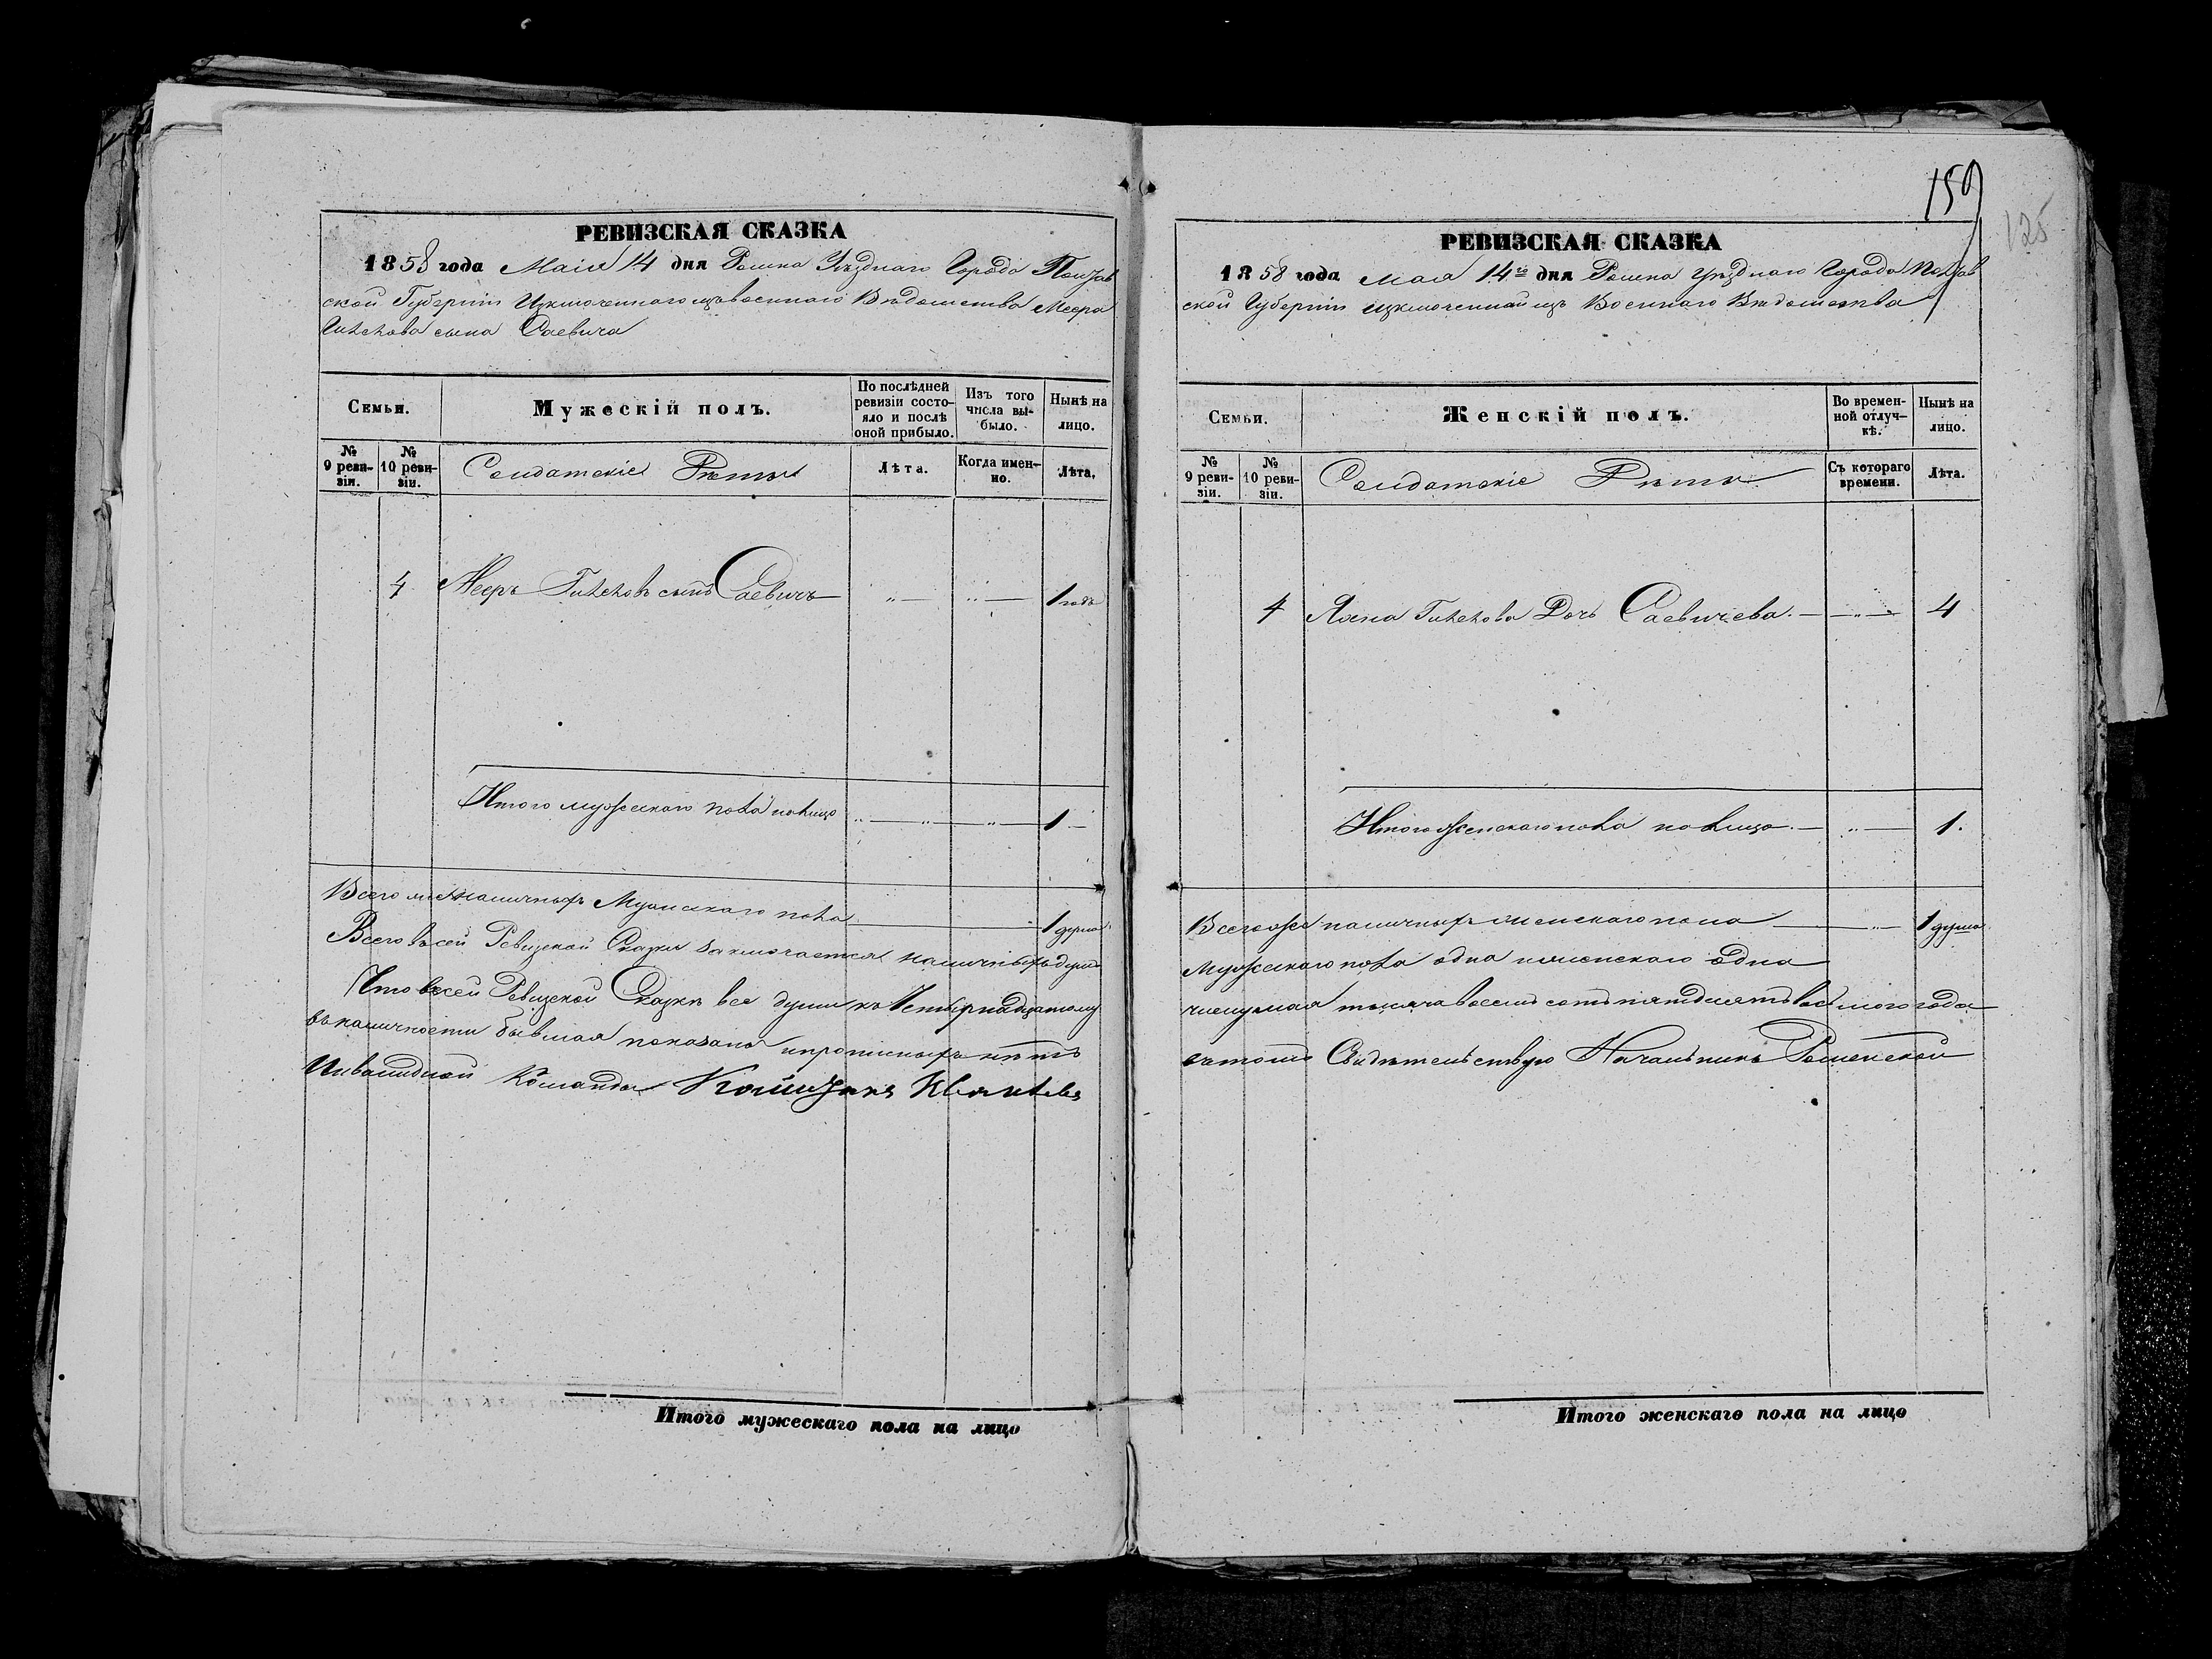 РЕВИЗСКАЯ СКАЗКА
1858 года Маія 14 дня Ромна Уѣзднаго Города Полтав
ской Губерніи Изключеннаго изъ военнаго Вѣдомства Меера
сына Саевича
Семьи.
Мужескій полъ.
По послѣдней ревизіи состояло и послѣ оной прибыло.
Изъ того числа выбыло.
Нынѣ на лицо.
№ 9 ревизіи.
№ 10 ревизіи.
Солдатскіе Дѣти
Лѣта.
Когда именно.
Лѣта.
4 Мееръ сынъ Саевичъ 1 годъ
Итого мужескаго пола налицо 1
Всего наличныхъ Мужескаго пола 1 душа
Всего въ сей Ревизской Сказки заключается наличныхъ душъ
Что в сей Ревизской Сказкѣ все души къ Четырнадцатому
въ наличности бывшая показана и прописныхъ нѣтъ
Инвалидной Команды
Итого мужескаго пола на лицо
159
125
РЕВИЗСКАЯ СКАЗКА
1858 года мая 14го дня Ромна Уѣзднаго Города Полтав
ской Губерніи изключенной изъ Военнаго Вѣдомства
Семьи.
Женскій полъ.
Во временной отлучкѣ.
Нынѣ на лицо.
№ 9 ревизіи.
№ 10 ревизіи.
Солдатскіе Дѣти
Съ котораго времени.
Лѣта.
4 Дочь Саевичева. 4
Итого женскаго пола налицо 1.
Всего наличныхъ женскаго пола 1 душа
Мужескаго пола одна и женскаго одна
числу мая тысяча восемь сотъ пятдесятъ восмого года
въ томъ Свидѣтельствую Начальникъ Роменской
Итого женскаго пола на лицо